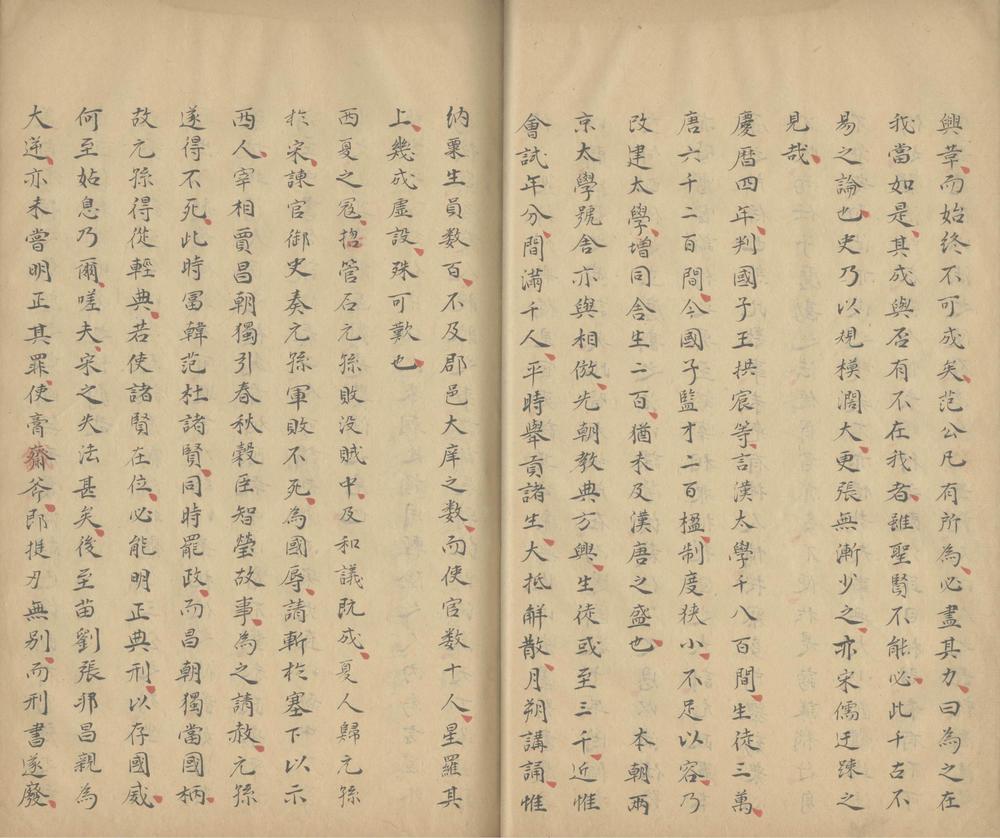 興革而始終不可成矣范公凡有所為必盡其力曰為之在
我當如是其成與否有不在我者雖聖賢不能必此千古不
易之論也史乃以規模濶大更張無漸少之亦宋儒迂踈之
見哉
慶曆四年判國子王拱宸等言漢太學千八百間生徒三萬
唐六千二百間今國子監才二百楹制度狹小不足以容乃
改建太學增同舍生二百猶未及漢唐之盛也 本朝兩
京太學號舍亦與相倣先朝教典方興生徒或至三千近惟
會試年分間滿千人平時舉貢諸生大抵解散月朔講誦惟
納粟生員数百不及郡邑大庠之数而使官数十人星羅其
上幾成虛設殊可歎也
西夏之冦𢬵管石元孫敗没賊中及和議既成夏人歸元孫
於宋諫官御史奏元孫軍敗不死為國辱請斬於塞下以示
西人宰相賈昌朝獨引春秋糓臣智瑩故事為之請赦元孫
遂得不死此時冨韓范杜諸賢同時罷政而昌朝獨當國柄
故元孫得從輕典若使諸賢在位必能明正典刑以存國威
何至姑息乃爾嗟夫宋之失法甚矣後至苗劉張邦昌親為
大逆亦未嘗明正其罪使膏齋斧即挺刀無别而刑書遂廢